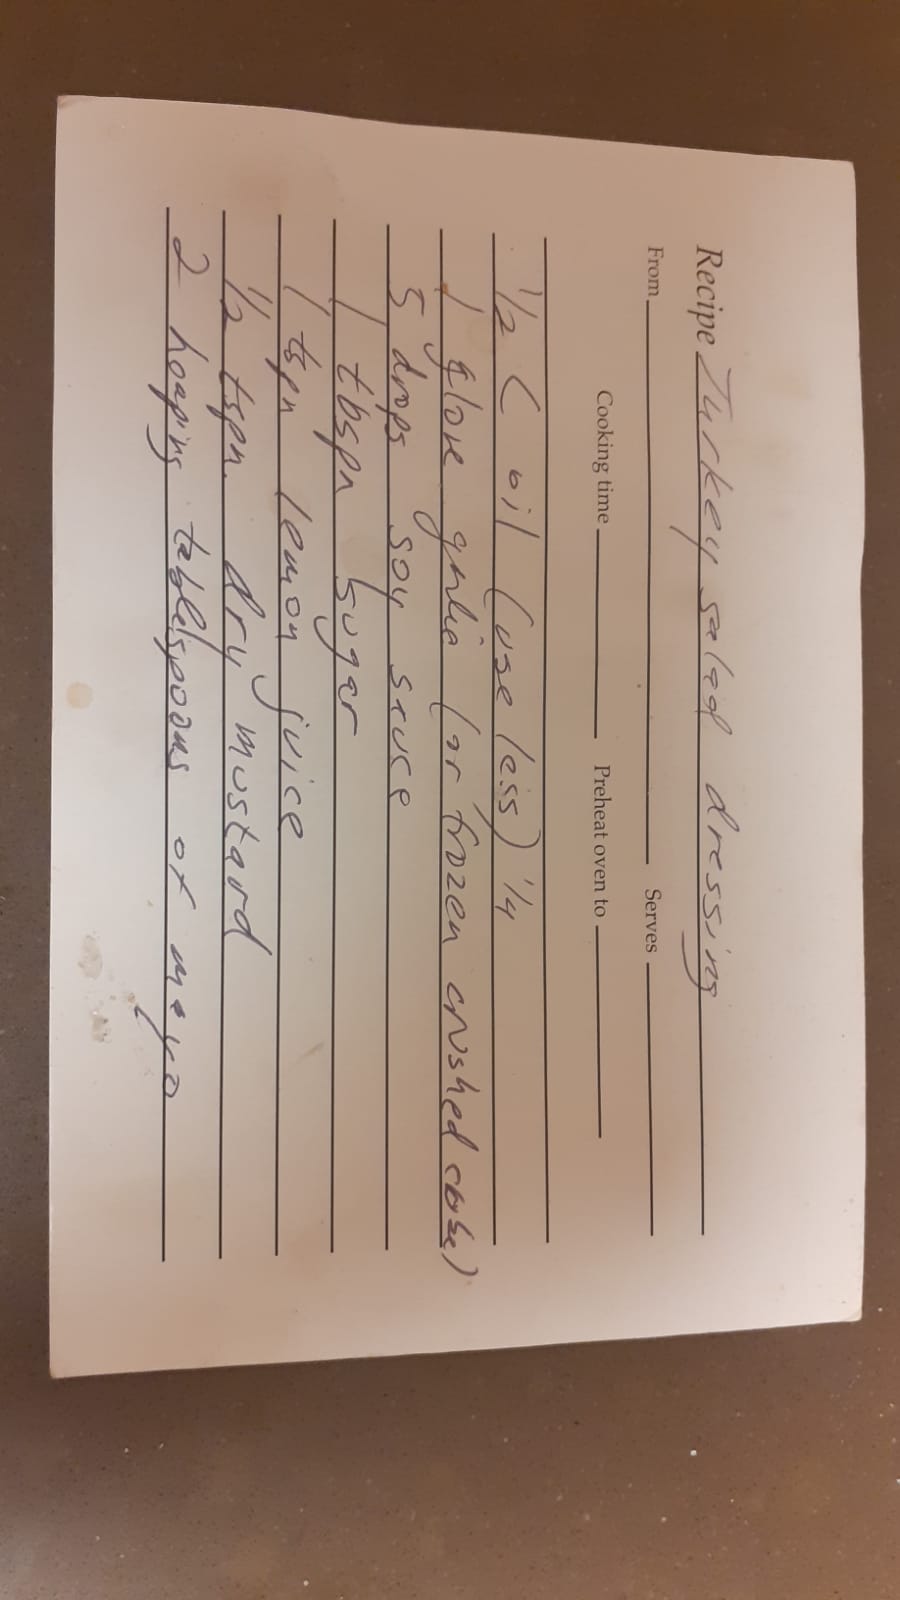 Recipe Turkey salad dressing
From Serves
Cooking time Preheat oven to
1/2 C oil (use less) 1/4
1 glove garlic (or frozen crushed cube)
5 drops soy sauce
1 tbspn sugar
1 tspn lemon juice
1/2 tspn. dry mustard
2 heaping tablespoons of mayo